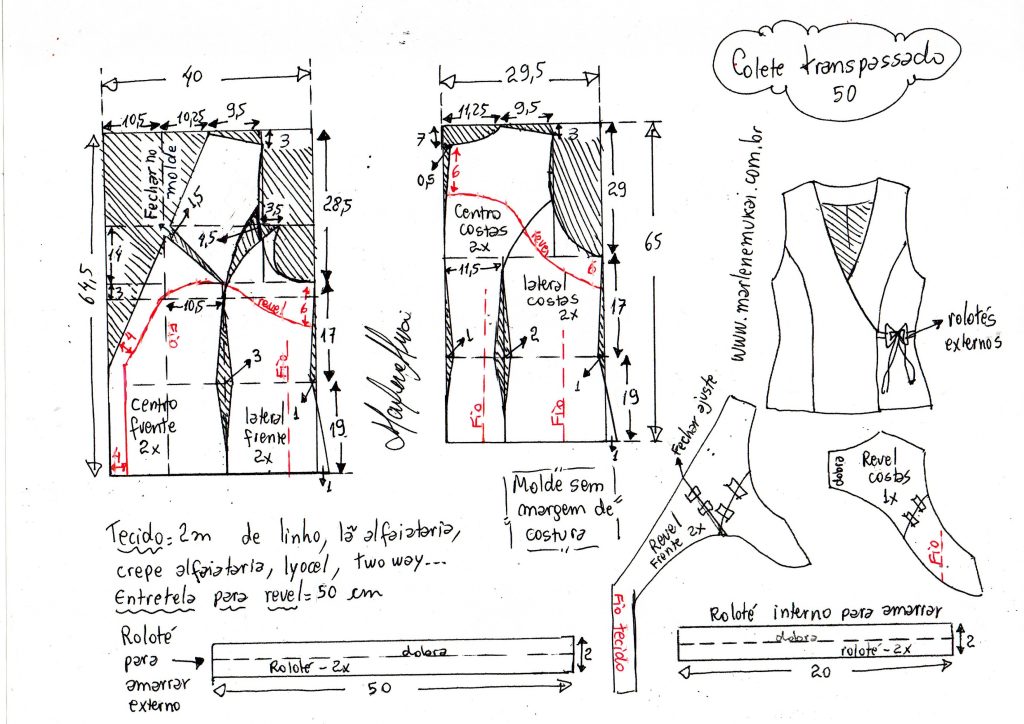 Colete transpassado
50
www.marlenemukai.com.br
40
10,5
10,25
9,5
3
Fechar no
molde
1,5
3,5
4,5
28,5
64,5
14
3
10,5
revel
6
4
fio
17
3
Fio
1
Centro
frente
2x
lateral
frente
2x
19
4
1
29,5
11,25
9,5
7
3
0,5
6
29
Centro
costas
2x
revel
65
11,5
6
lateral
costas
2x
17
1
2
1
Fio
Fio
19
1
Marlene Mukai
rolotês
externos
Molde sem
margem de
costura
Fechar ajuste
Revel
Frente 2x
Fio tecido
dobra
Revel
costas
1x
Fio
Tecido = 2m de linho, lã alfaiataria,
crepe alfaiataria, lyocel, two way...
Entretela para revel = 50 cm
Roloté
para
amarrar
externo
dobra
Roloté - 2x
2
50
Roloté interno para amarrar
dobra
roloté - 2x
2
20